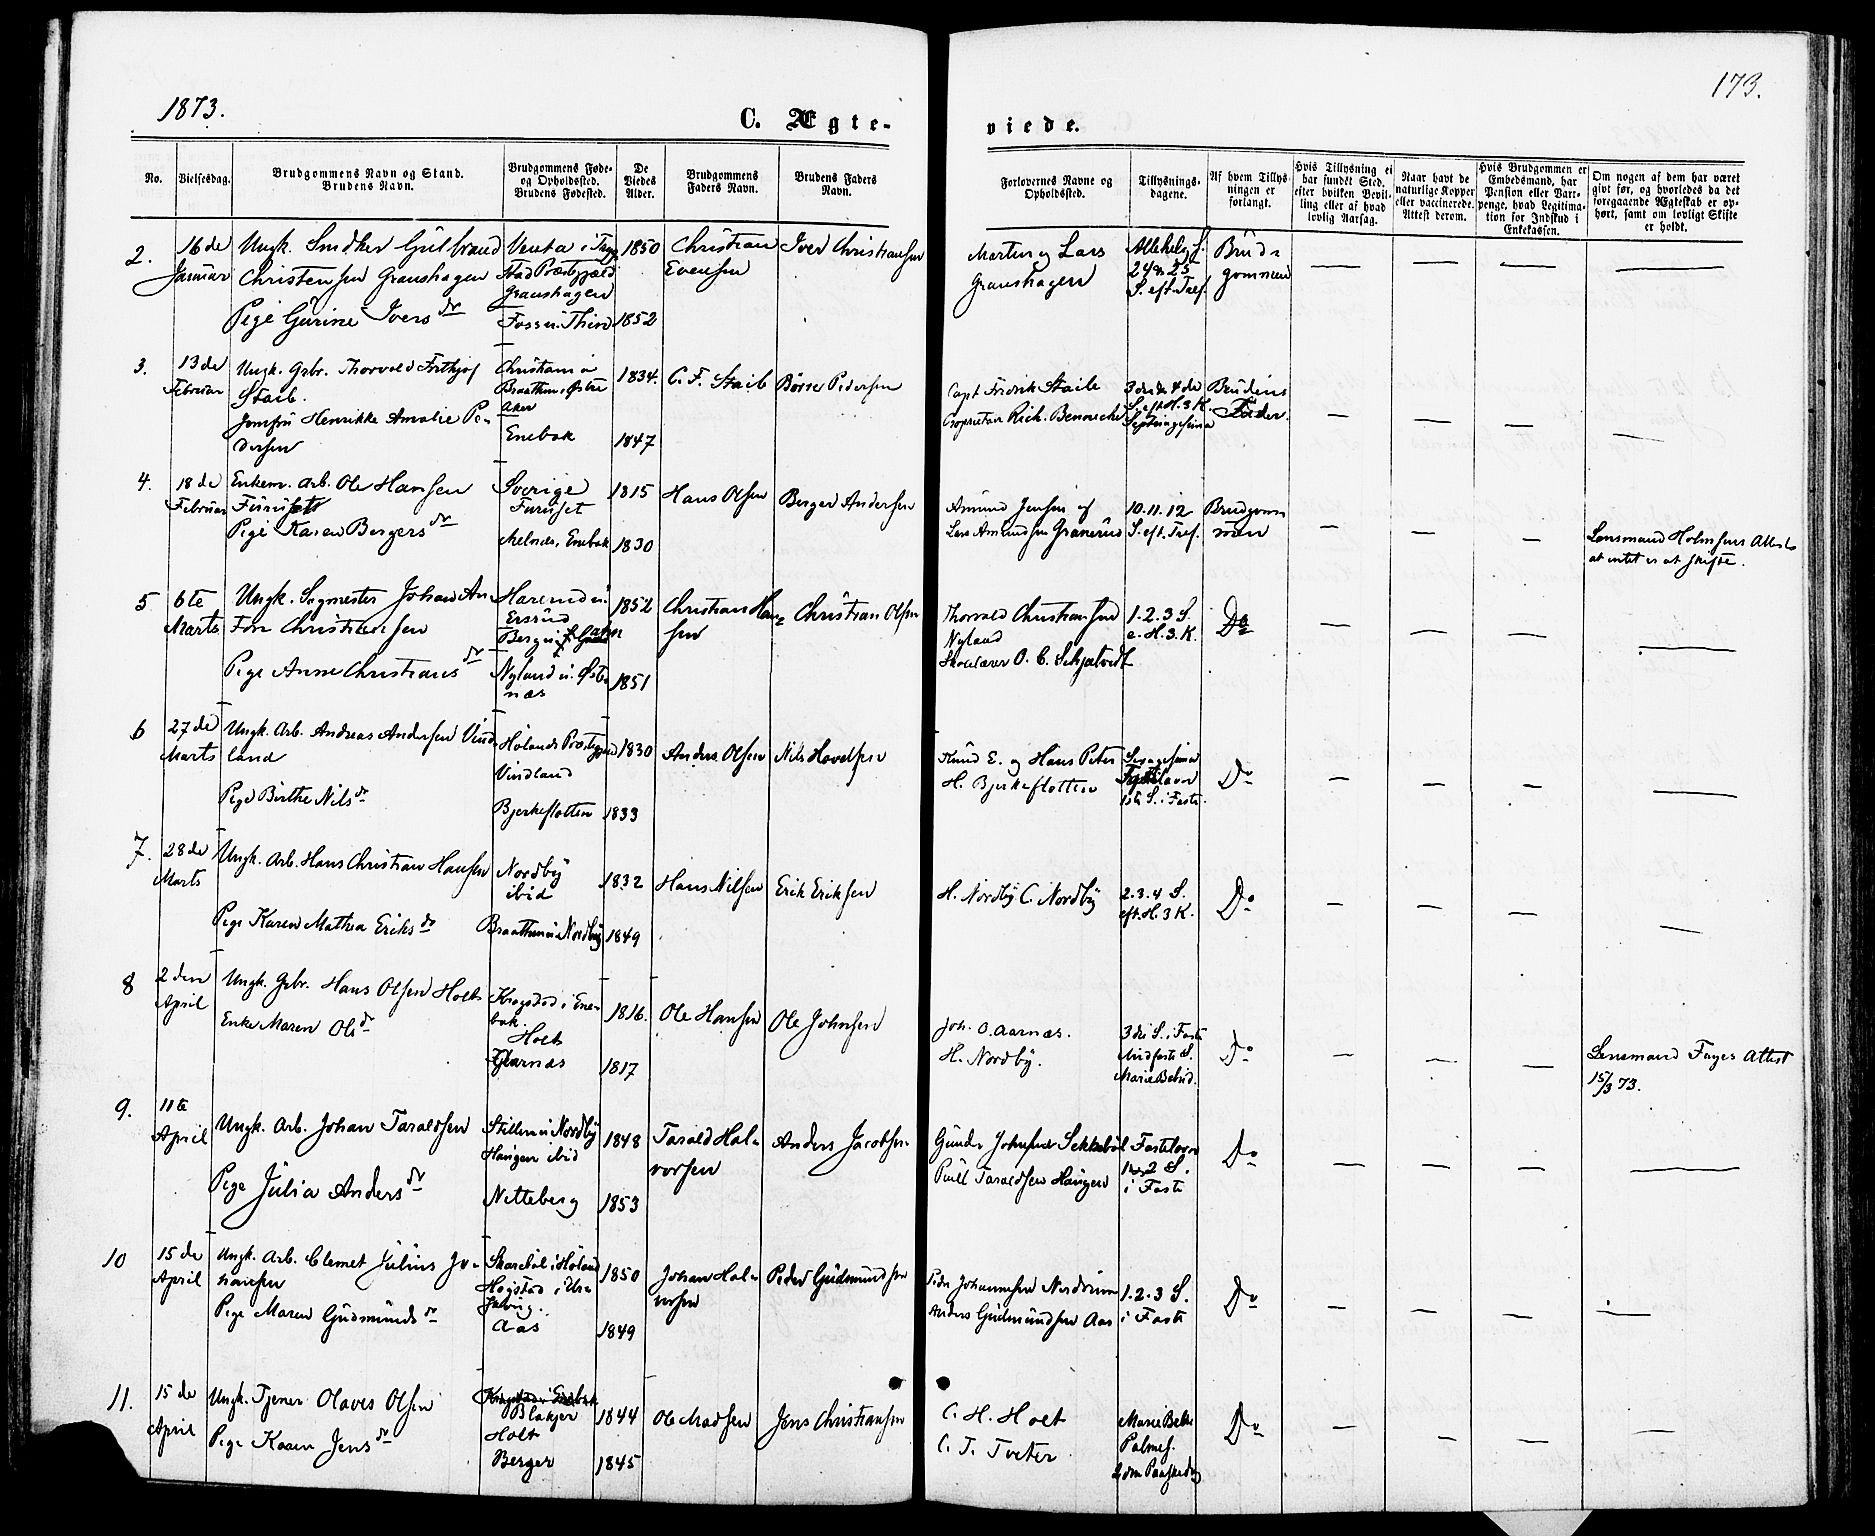 1873.
173.
C. Ægte-
viede.
No.
Vielsesdag.
Brudgommens Navn og Stand.
Brudens Navn.
Brudgommens Føde-
og Opholdssted.
Brudens Fødested.
De
Viedes
Alder.
Brudgommens
Faders Navn.
Brudens Faders
Navn.
Forlovernes Navne og
Opholdssted.
Tillysnings-
dagene.
Af hvem Tillys
ningen er
forlangt.
Hvis Tillysning ei
har fundet Sted,
efter hvilken Bevil-
ling eller af hvad
lovlig Aarsag.
Naar havt de
naturlige Kopper
eller vaccinerede.
Attest derom.
Hvis Brudgommen er
Embedsmand, har
Pension eller Var-
penge, hvad Legitima-
tion for Indskud i
Enkekassen.
Om nogen af dem har været
givt før, og hvorledes da det
foregaaende Ægteskab er op-
hørt, samt om lovligt Skifte
er holdt.
2.
16de
Januar
Ungk. Snedker Gulbrand
Christensen Granshagen
Pige Gurine Ivers dr
Præstegjæld
Granshagen
1850
1852
Christian
Evensen
Iver Christiansen
Martin og Lars
Granshagen
Allehelg. S.
24 & 25
S. eft. Tref.
Brud-
gommen
3.
13de
Februar
Ungk. Gbr. Thorvald Frithjof
Staib.
Jomfru Henrikke Amalie Pe-
dersen
Christiania
Braathen Østre
Aker
Enebak
1834.
1847
C. F. Staib
Børre Pedersen
Capt Fredrik Staib
Rich. Bennecke
3die & 4de
S. eft. H. 3 K.
Septuagesima
Brudens
Fader.
4.
18de
Februar
Enkem. Arb. Ole Hansen
Furuset
Pige Karen Bergers dr
Sverige
Furuset
Melnes, Enebak
1815
1830
Hans Olsen
Berger Andersen
Amund Jensen og
Lars Amundsen Granerud
10. 11. 12
S. eft. Tref.
Brudgom-
men
Lensmand Holmsens Attest
at intet er at skifte.
5
6te
Marts
Ungk. Sagmester Johan An-
ton Christiansen
Pige Anne Christians dr
Nyland u. Øste-
næs
1852
1851
Christian Han-
sen
Christian Olsen
Thorvald Christiansen
Nyland
Skolelærer O. C. Schjatvedt
1. 2. 3 S.
e. H. 3. K.
Do
6
27de
Marts
Ungk. Arb. Andreas Andersen Vind-
land
Pige Birthe Nils dr
Hølands Præstegjæld
Vindland
Bjerkeflotten
1830
1833
Anders Olsen
Nils Hovelsen
Knud E. og Hans Peter
H. Bjerkeflotten
Sexagesima
Fastelavn
1ste S. i Faste.
Do
7.
28de
Marts
Ungk. Arb. Hans Christian Hansen
Pige Karen Mathea Eriks dr
Nordby
ibid
Braathen u. Nordby
1832
1849
Hans Nilsen
Erik Eriksen
H. Nordby C. Nordby
2. 3. 4 S.
eft. H. 3 K.
Do
8
2den
April
Ungk. Gbr. Hans Olsen Holt
Enke Maren Ols dr
Kragstad i Ene-
bak.
Holt
1816.
1817
Ole Hansen
Ole Johnsen
Joh. O. Aarnæs.
H. Nordby.
3die S. i Faste
Midfaste S.
Marie Bebud.
Do
Lensmand Fayes Attest
15/3 73.
9.
11te
April
Ungk. Arb. Johan Taraldsen
Pige Julia Anders dr
Haugen ibid
Nitteberg
1848
1853
Tarald Hal-
vorsen
Anders Jacobsen
Gunder Johnsen
Paul Taraldsen Haugen
Fastelavn
1 & 2 S.
i Faste
Do
10
15de
April
Ungk. Arb. Clemet Julius Jo-
hansen
Pige Maren Gudmunds dr
Skarebøl i Høland
Aas
1850
1849
Johan Hal-
vorsen
Peder Gudmundsen
Peder Johannesen Nordrum
Anders Gudmundsen Aas
1. 2. 3 S.
i Faste
Do
11.
15de
April
Ungk. Tjener Olaves Olsen
Pige Karen Jens dr
Kragstad i Enebak
Blakjer
Holt
Berger
1844
1845
Ole Madsen
Jens Christiansen
C. H. Holt
C. T. Tveter
Marie Beb.
Palmes.
2den Paaskedag
Do